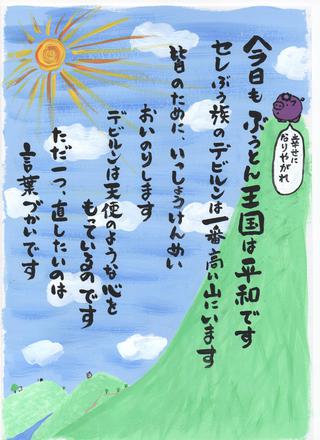 今日も ぶぅとん王国は平和です
セレぶぅ族のデビルンは一番高い山にいます
皆のために、いっしょうけんめい
おいのりします
デビルンは天使のような心を
もっているのです
ただ一つ、直したいのは
言葉づかいです
幸せに
なりやがれ